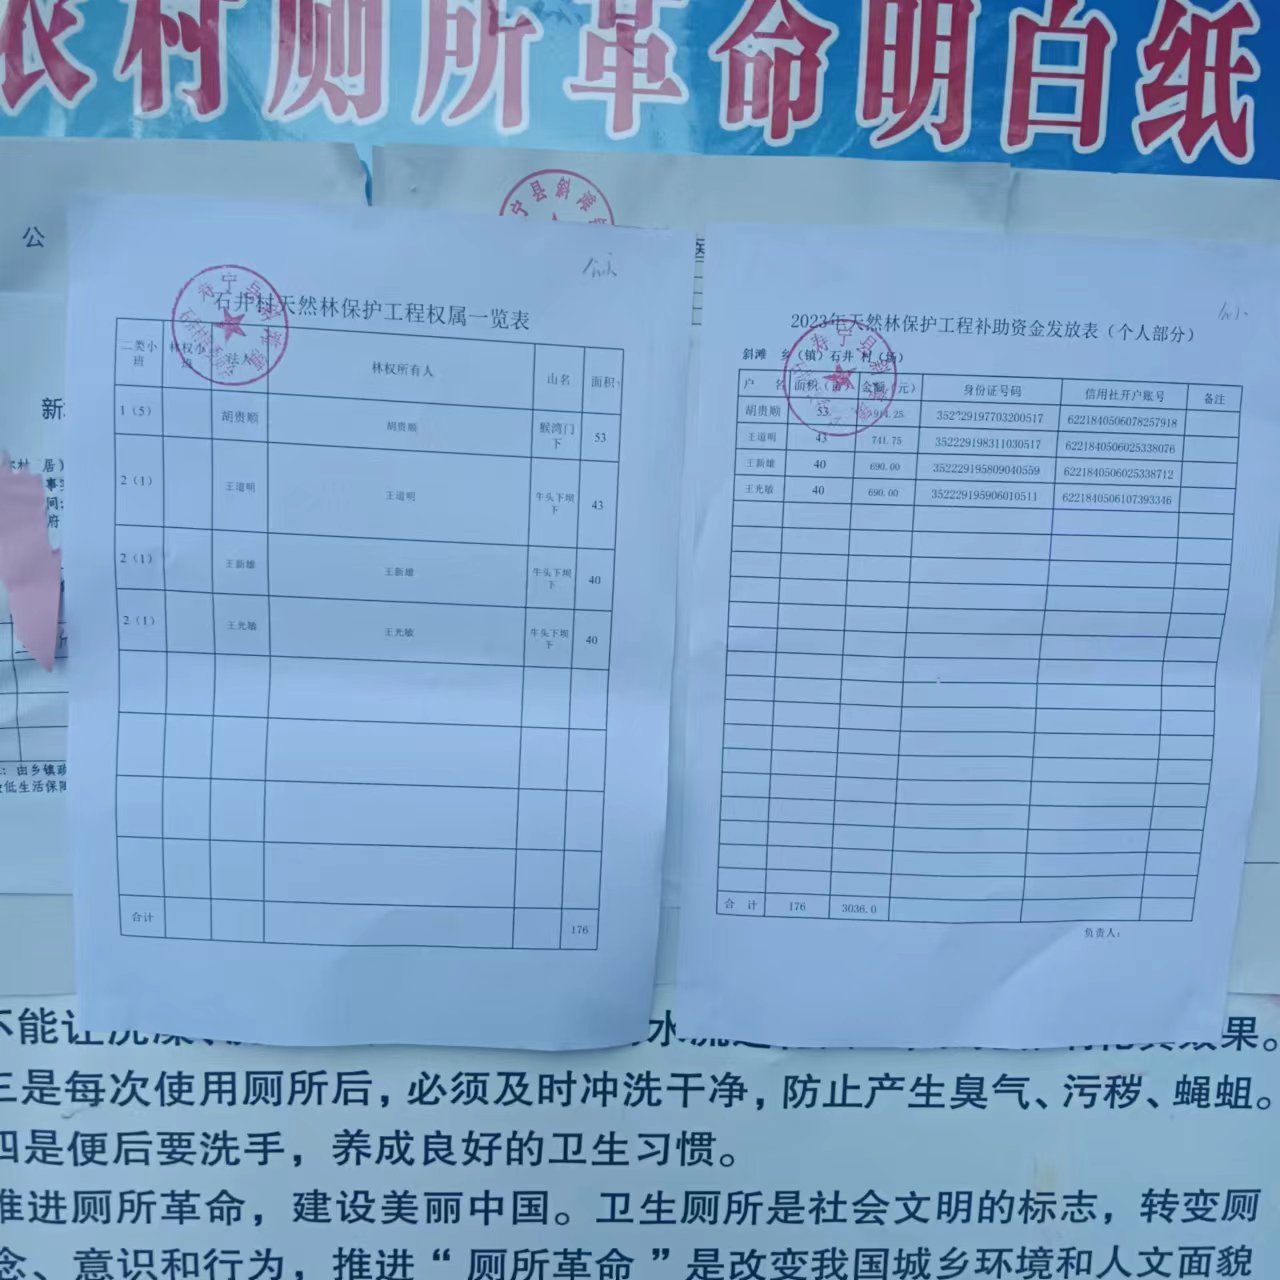 农村厕所革命明白纸
公
石井村天然林保护工程权属一览表
二类小班 林权小班 法人 林权所有人 山名 面积
1（5） 胡贵顺 胡贵顺 猴湾门下 53
2（1） 王道明 王道明 牛头下坝下 43
2（1） 王新雄 王新雄 牛头下坝下 40
2（1） 王光敏 王光敏 牛头下坝下 40
合计 176
2023年天然林保护工程补助资金发放表（个人部分）
斜滩 乡（镇）石井 村（场）
户 名 面积（亩） 金额（元） 身份证号码 信用社开户账号 备注
胡贵顺 53 914.25 352229197703200517 6221840506078257918
王道明 43 741.75 352229198311030517 6221840506025338076
王新雄 40 690.00 352229195809040559 6221840506025338712
王光敏 40 690.00 352229195906010511 6221840506107393346
合 计 176 3036.0
负责人：
新
居）
事实
间：
府
由乡镇政
低生活保障
宁县斜滩
不能让洗澡
水流
效果。
三是每次使用厕所后，必须及时冲洗干净，防止产生臭气、污秽、蝇蛆。
四是便后要洗手，养成良好的卫生习惯。
推进厕所革命，建设美丽中国。卫生厕所是社会文明的标志，转变厕
念、意识和行为，推进“厕所革命”是改变我国城乡环境和人文面貌